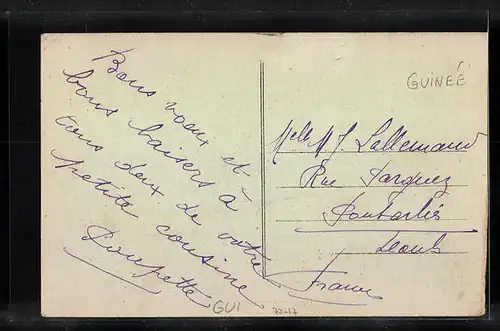 Bons vœux et
bons baisers à
tous deux de votre
petite cousine
Poupette
GUINÉE
Melle M J. Lallemand
Rue
Pontarlier
Doubs
France
GUI